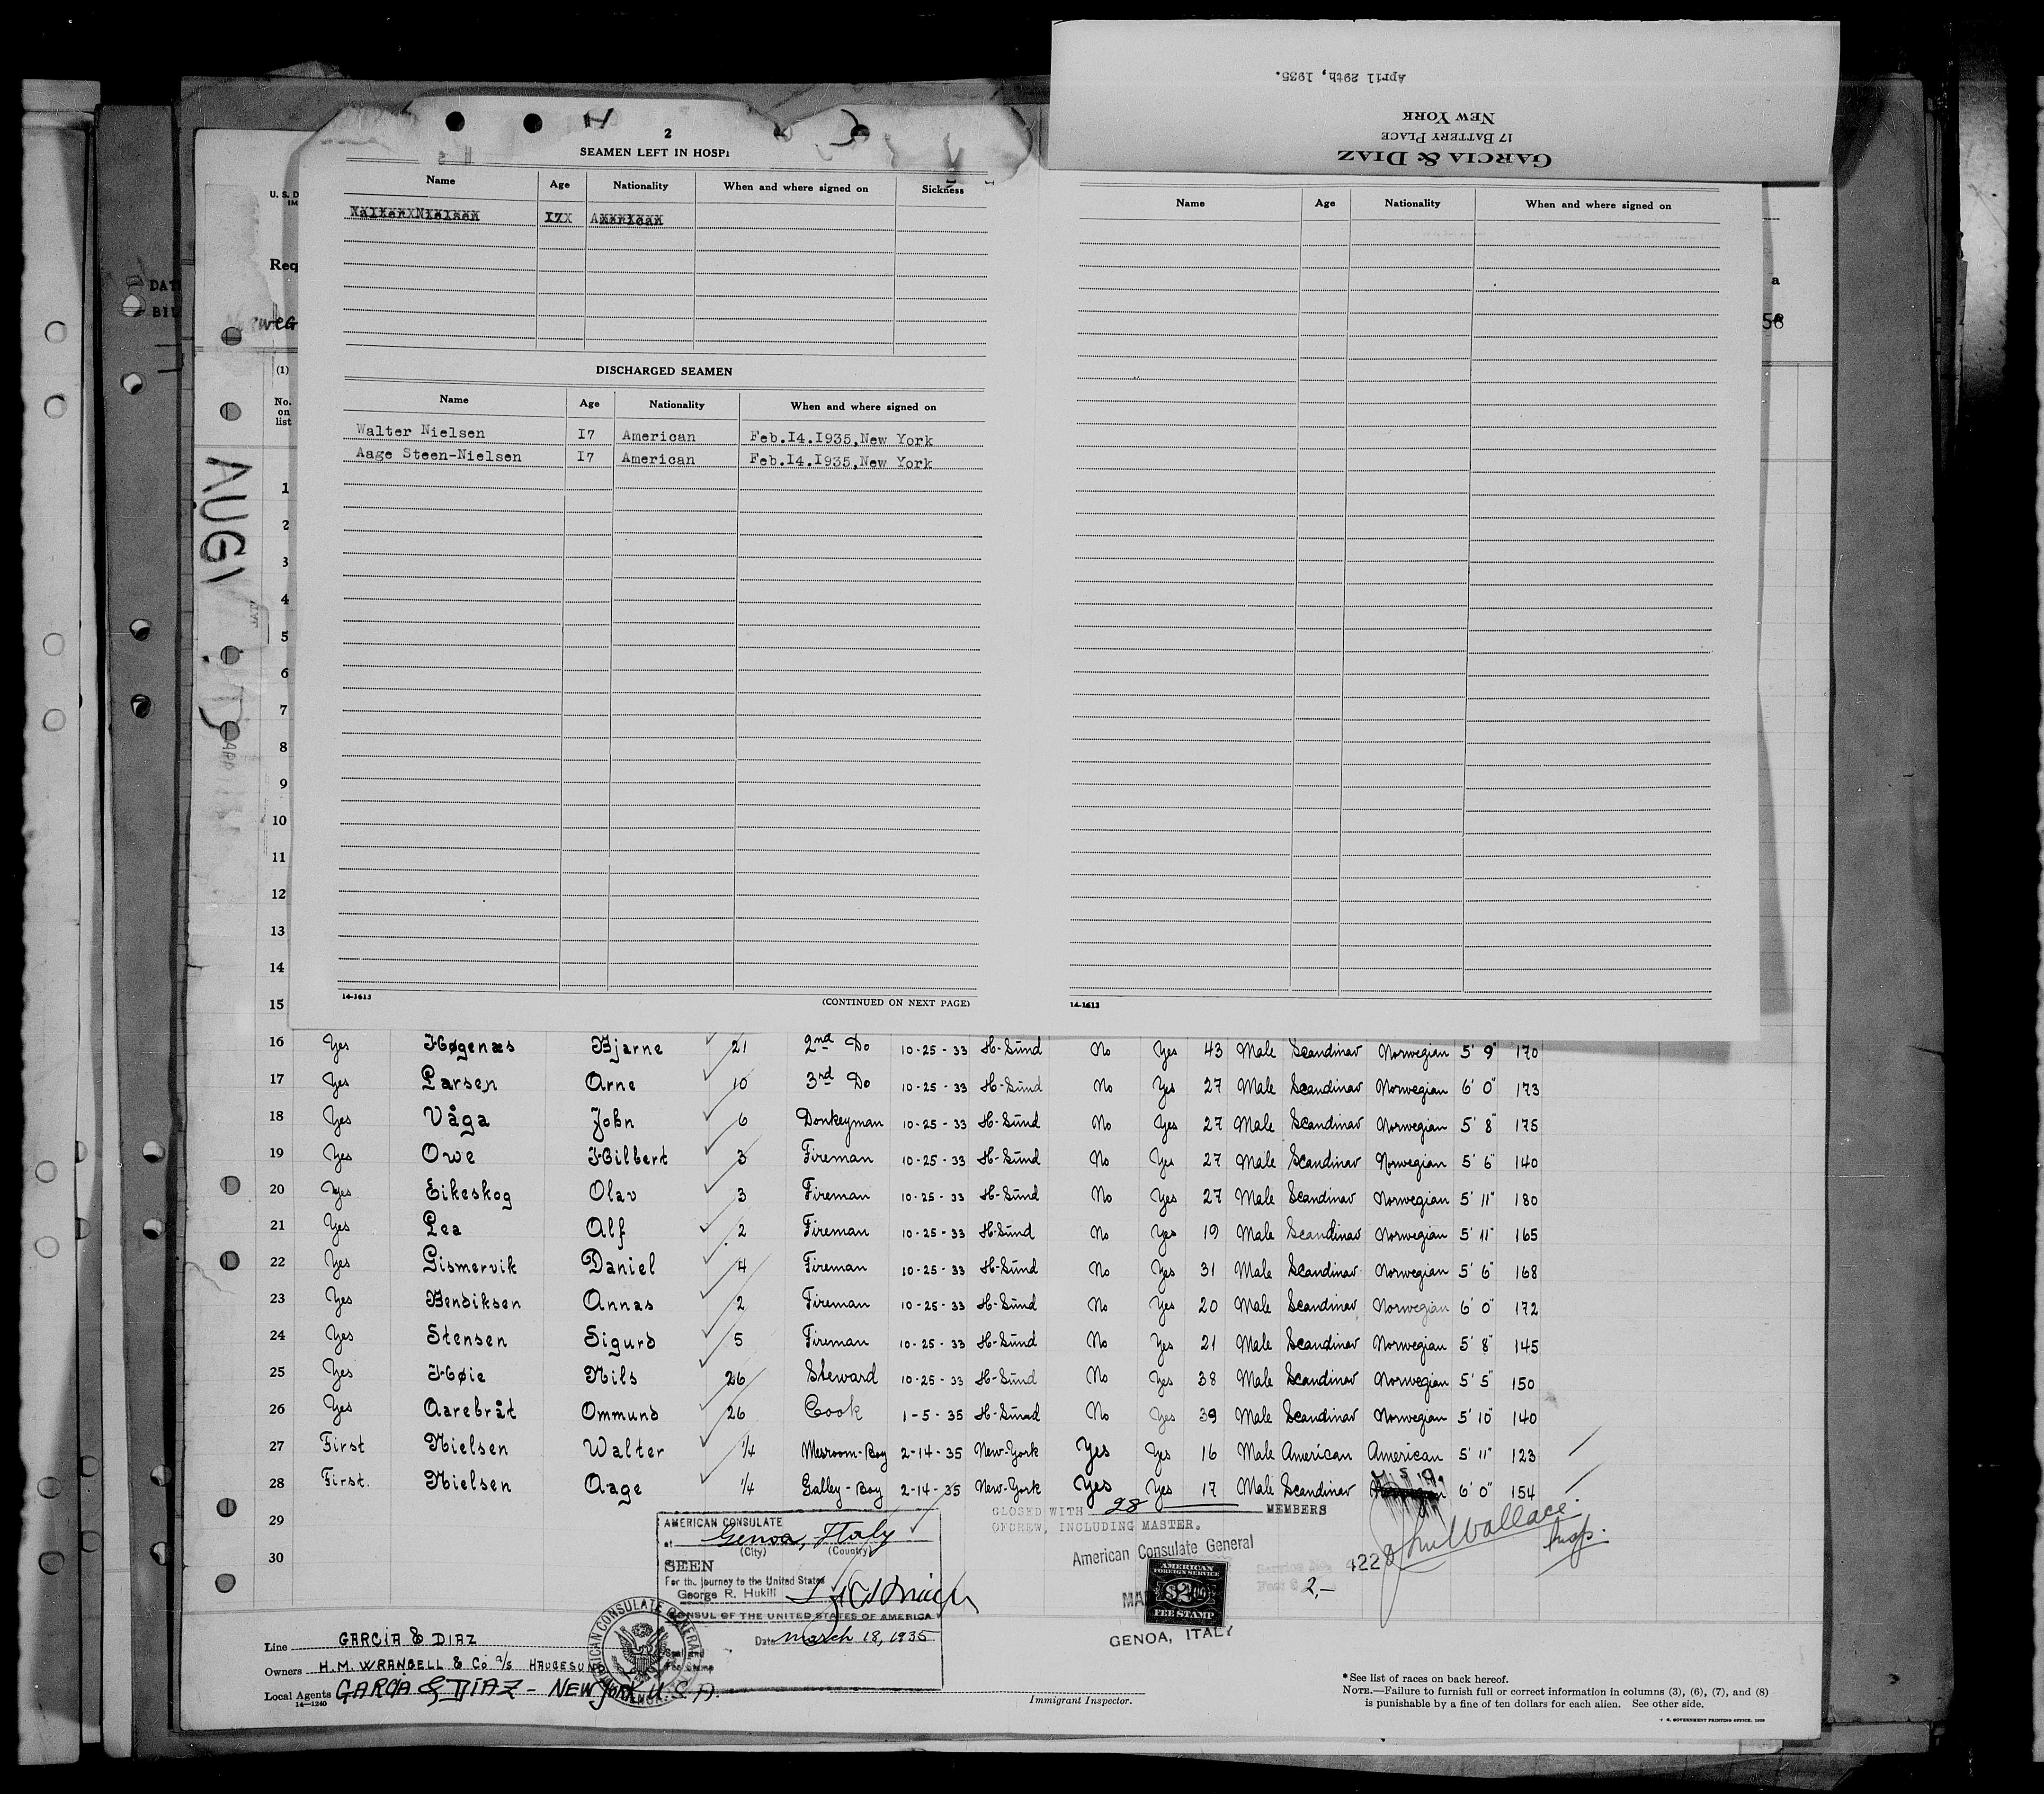 April 29th, 1935.
NEW YORK
17 BATTERY PLACE
GARCIA & DIAZ
2
SEAMEN LEFT IN HOSPI
Name Age Nationality When and where signed on Sickness
Walter Nielsen 17 American
DISCHARGED SEAMEN
Name Age Nationality When and where signed on
Walter Nielsen I7 American Feb.I4.I935,New York
Aage Steen-Nielsen I7 American Feb.I4.I935,New York
14-1613 (CONTINUED ON NEXT PAGE)
Name Age Nationality When and where signed on
14-1613
U. S. D
Req
(1)
No. on list
DAT
BIV
AUGI
a
56
1
2
3
4
5
6
7
8
9
10
11
12
13
14
15
16 Yes Høgenæs Bjarne 21 2nd Do 10-25-33 H-Sund No Yes 43 Male Scandinav Norwegian 5' 9" 170
17 Yes Larsen Arne 10 3rd Do 10-25-33 H-Sund No Yes 27 Male Scandinav Norwegian 6' 0" 173
18 Yes Våga John 6 Donkeyman 10-25-33 H-Sund No Yes 27 Male Scandinav Norwegian 5' 8" 175
19 Yes Owe Hilbert 3 Fireman 10-25-33 H-Sund No Yes 27 Male Scandinav Norwegian 5' 6" 140
20 Yes Eikeskog Olav 3 Fireman 10-25-33 H-Sund No Yes 27 Male Scandinav Norwegian 5' 11" 180
21 Yes Lea Alf 2 Fireman 10-25-33 H-Sund No Yes 19 Male Scandinav Norwegian 5' 11" 165
22 Yes Gismervik Daniel 4 Fireman 10-25-33 H-Sund No Yes 31 Male Scandinav Norwegian 5' 6" 168
23 Yes Bendiksen Annas 2 Fireman 10-25-33 H-Sund No Yes 20 Male Scandinav Norwegian 6' 0" 172
24 Yes Stensen Sigurd 5 Fireman 10-25-33 H-Sund No Yes 21 Male Scandinav Norwegian 5' 8" 145
25 Yes Høie Nils 26 Steward 10-25-33 H-Sund No Yes 38 Male Scandinav Norwegian 5' 5" 150
26 Yes Aarebråt Ommund 26 Cook 1-5-35 H-Sund No Yes 39 Male Scandinav Norwegian 5' 10" 140
27 First Nielsen Walter 1/4 Messroom-Boy 2-14-35 New-York Yes Yes 16 Male American American 5' 11" 123
28 First. Nielsen Aage 1/4 Galley-Boy 2-14-35 New-York Yes Yes 17 Male Scandinav U.S.A. 6' 0" 154
29
30
CLOSED WITH 28 MEMBERS
OF CREW, INCLUDING MASTER.
AMERICAN CONSULATE
at Genoa, Italy
(City) (Country)
SEEN
For the journey to the United States
George R. Hukill
CONSUL OF THE UNITED STATES OF AMERICA
Date March 18, 1935
AMERICAN CONSULATE GENERAL
American Consulate General
AMERICAN
FOREIGN SERVICE
$2.00
FEE STAMP
GENOA, ITALY
Service No. 422
Fee $ 2,-
Wallace
Insp.
Line GARCIA & DIAZ
Owners H.M. WRANGELL & Co A/S HAUGESUND
Local Agents GARCIA & DIAZ - NEW YORK U.S.A.
14-1240
Immigrant Inspector.
*See list of races on back hereof.
NOTE.—Failure to furnish full or correct information in columns (3), (6), (7), and (8)
is punishable by a fine of ten dollars for each alien. See other side.
U. S. GOVERNMENT PRINTING OFFICE